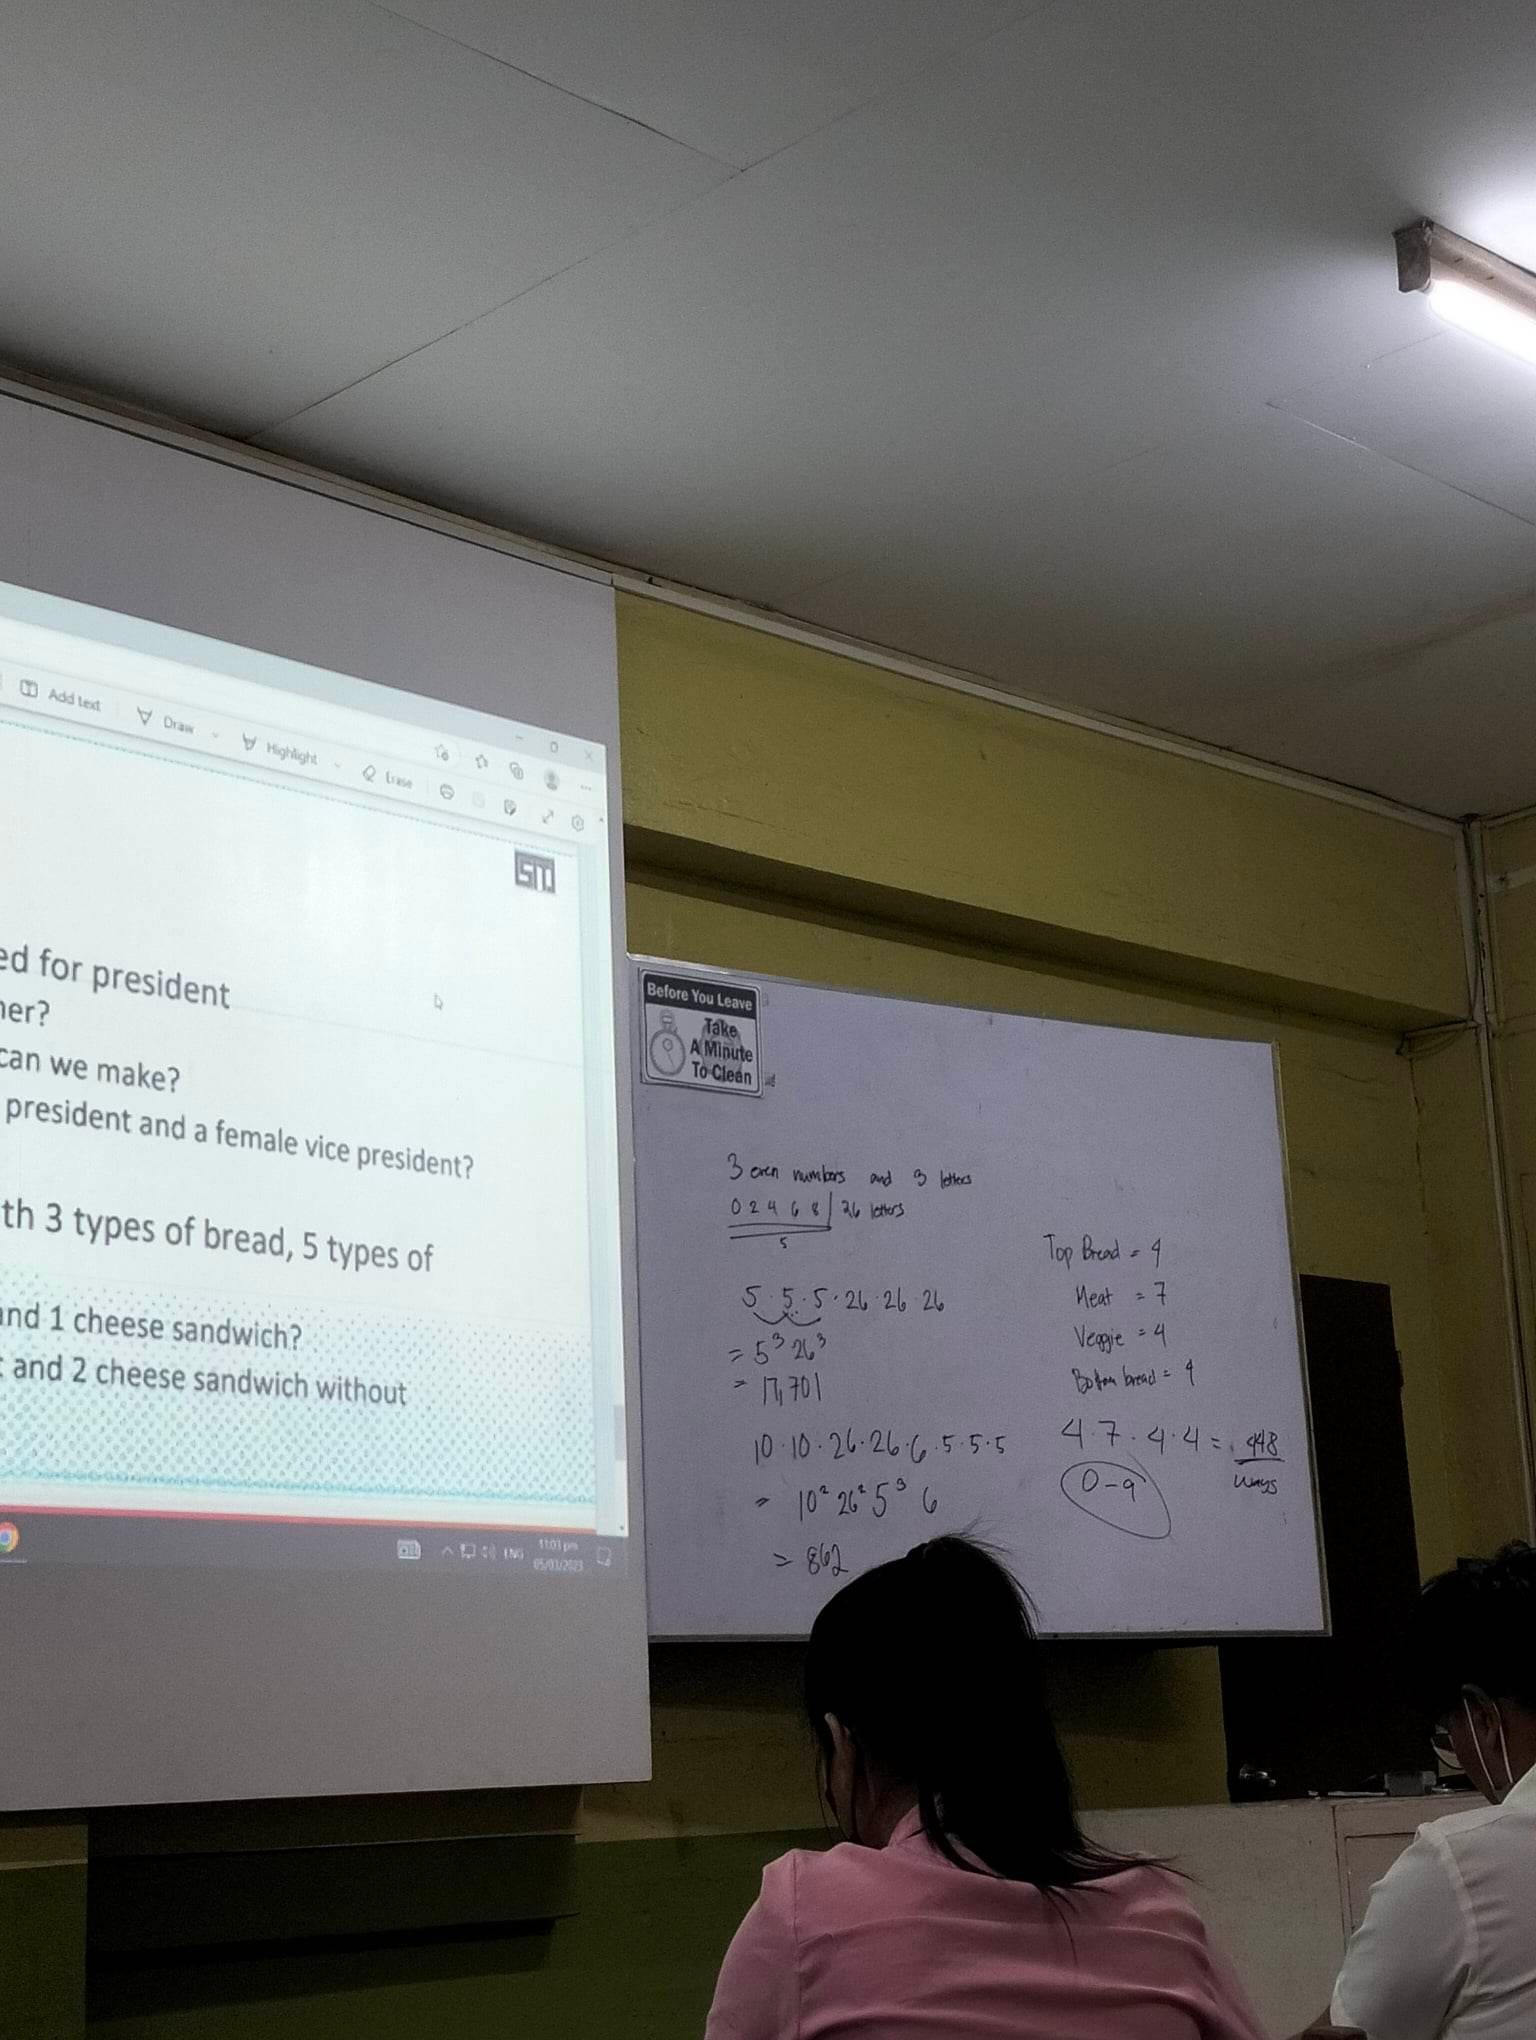 Add text
Draw
Highlight
Erase
STI
ed for president
ner?
can we make?
president and a female vice president?
th 3 types of bread, 5 types of
and 1 cheese sandwich?
t and 2 cheese sandwich without
ENG
11:03 pm
05/03/2023
Before You Leave
Take
A Minute
To Clean
3 even numbers and 3 letters
0 2 4 6 8 | 26 letters
5
5 · 5 · 5 · 26 · 26 · 26
= 5³ 26³
= 17,701
10 · 10 · 26 · 26 · 6 · 5 · 5 · 5
= 10² 26² 5³ 6
= 862
Top Bread = 4
Meat = 7
Veggie = 4
Bottom bread = 4
4 · 7 · 4 · 4 = 448
ways
0-9